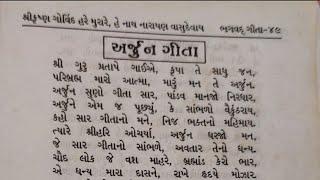 શ્રીકૃષ્ણ ગોવિંદ હરે મુરારે, હે નાથ નારાયણ વાસુદેવાય ભગવદ્ ગીતા-૪૯
અર્જુન ગીતા
શ્રી ગુરુ પ્રતાપે ગાઈએ, કૃપા તે સાધુ જન,
પરિબ્રહ્મ મારો આત્મા, મારું મન તે અર્જુન.
અર્જુન સુણો ગીતા સાર, પાંડવ માનજો નિરધાર,
અર્જુને એમ જ પૂછ્યું, કે સાંભળો વૈકુંઠરાય,
કહો સાર ગીતાનો મને, નિજ ભક્તનો મહિમાય.
ત્યારે શ્રીહરિ ઓચર્યા, અર્જુન ધરજો મન,
જે સાર ગીતાનો સાંભળે, અવતાર તેનો ધન્ય.
ચૌદ લોક જે વશ માહરે, બ્રહ્માંડ કેરો ભાર,
એ ધન્ય મારા દાસને, રાખે હૃદયે મોઝાર.